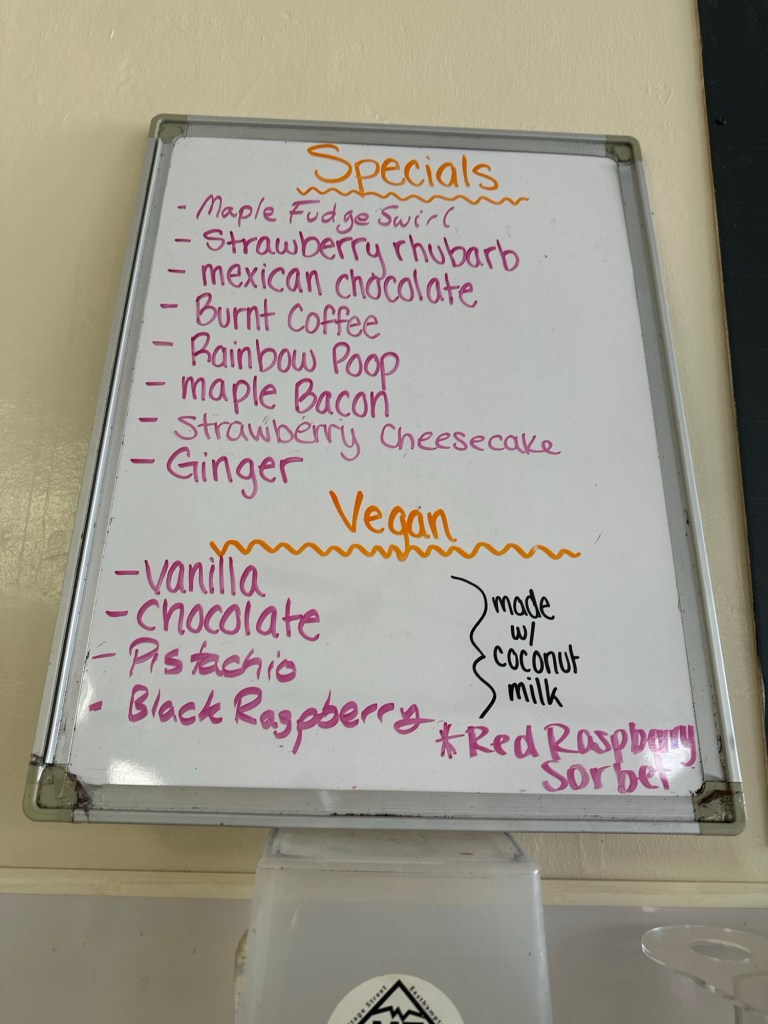 Specials
- Maple Fudge Swirl
- Strawberry rhubarb
- mexican chocolate
- Burnt Coffee
- Rainbow Poop
- maple Bacon
- Strawberry Cheesecake
- Ginger
Vegan
- vanilla
- Chocolate
- Pistachio
- Black Raspberry
made
w/
coconut
milk
*Red Raspberry
Sorbet